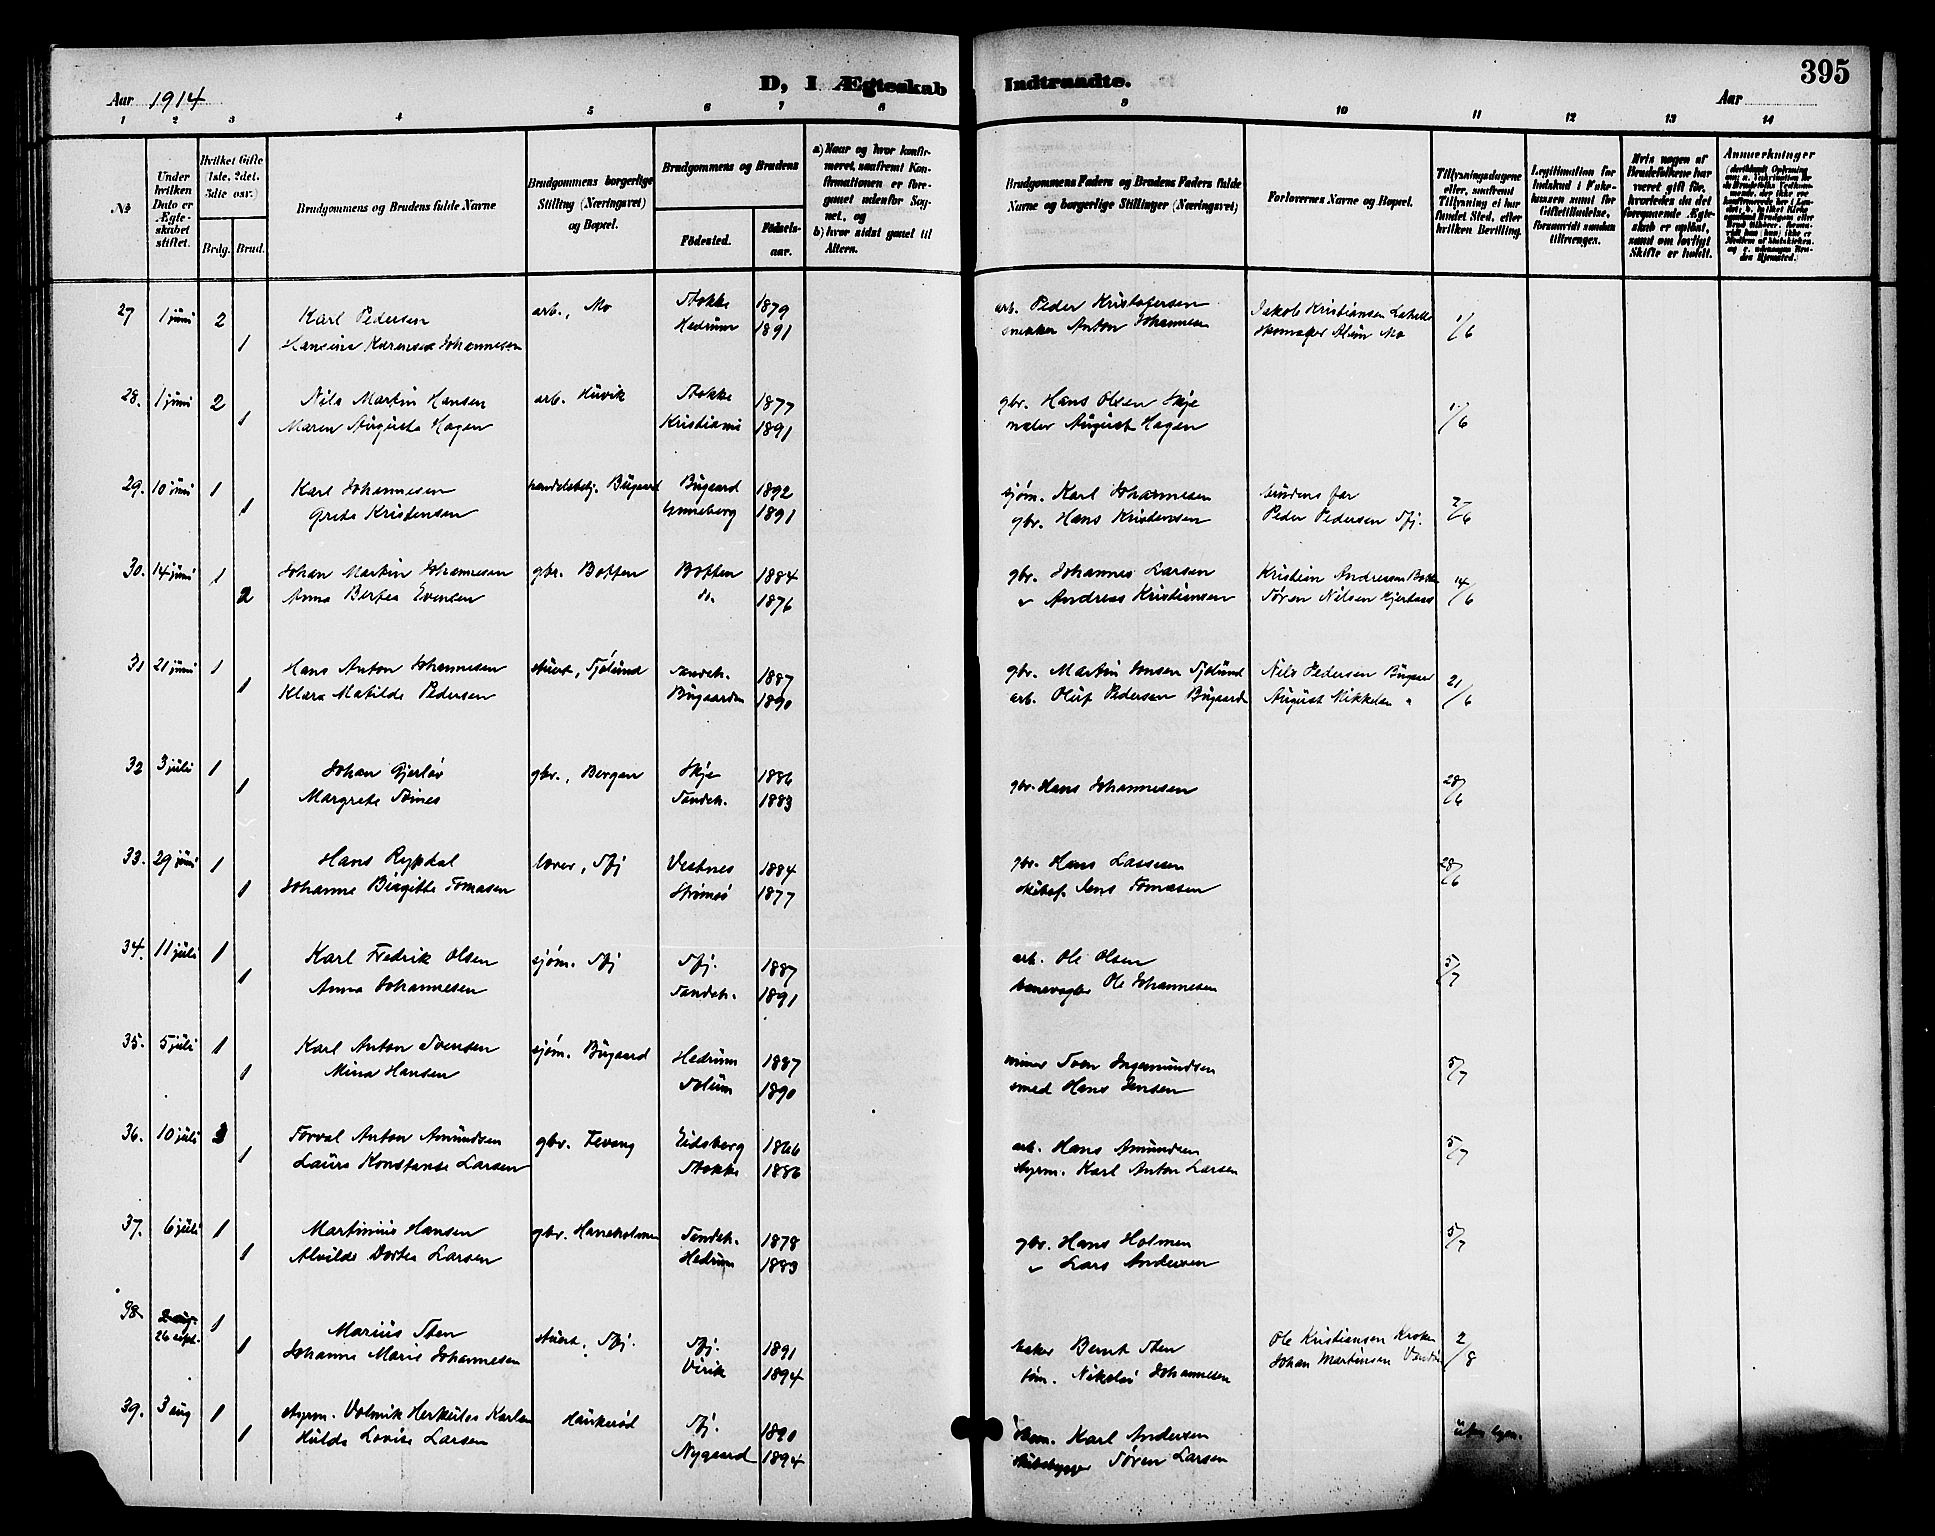 395
D, I Ægteskab Indtraadte.
Aar 1914
Aar
1 2 3 4 5 6 7 8 9 10 11 12 13 14
№
Under hvilken Dato er Ægteskabet stiftet.
Hvilket Gifte (1ste, 2det, 3die osv.)
Brdg. Brud.
Brudgommens og Brudens fulde Navne
Brudgommens borgerlige Stilling (Næringsvei) og Bopæl.
Brudgommens og Brudens
Fødested.
Fødselsaar.
a) Naar og hvor konfirmeret, saafremt Konfirmationen er foregaaet udenfor Sognet, og
b) hvor sidst gaaet til Alters.
Brudgommens Faders og Brudens Faders fulde Navne og borgerlige Stillinger (Næringsvei)
Forlovernes Navne og Bopæl.
Tillysningsdagene eller, saafremt Tillysning ei har fundet Sted, efter hvilken Bevilling.
Legitimation for Indskud i Enkekassen samt for Giftetilladelse, forsaavidt saadan tiltrænges.
Hvis nogen af Brudefolkene har været gift før, hvorledes da det foregaaende Ægteskab er opløst, samt om lovligt Skifte er holdt.
Anmærkninger
27 1 juni 2 Karl Pedersen arb., Mo Stokke 1879 arb. Peder Kristofersen Jakob Kristiansen 1/6
1 Johannesen Hedrum 1891 snekker Anton Johannesen Skomaker Mo
28. 1 juni 2 Nils Martin Hansen arb. Huvik Stokke 1877 gbr. Hans Olsen Skje 1/6
1 Maren Augusta Hagen Kristiania 1891 August Hagen
29. 10 juni 1 Karl Johannesen handelsbetj. Bugaard Bugaard 1892 sjøm. Karl Johannesen brudens far 2/6
1 Greta Kristensen Unneberg 1891 gbr. Hans Kristensen Peder Pedersen Sfj.
30. 14 juni 1 Johan Martin Johannesen gbr. Botten Botten 1884 gbr. Johannes Larsen Kristian Andreasen 14/6
2 Anna Bertea Evensen do. 1876 " Andreas Kristiansen Søren Nilsen Hjertaas
31 21 juni 1 Hans Anton Johannesen stuert, Fjølund Sandeh. 1887 gbr. Martin Jonsen Fjølund Nils Pedersen Bugaar 21/6
1 Klara Matilde Pedersen Bugaarden 1890 arb. Oluf Pedersen Bugaarde August Mikkelsen "
32 3 juli 1 Johan Gjerløv gbr., Bergan Skje 1886 gbr. Hans Johannesen 28/6
1 Margrete Sønes Sandeh. 1883
33. 29 juni 1 Hans Rypdal lærer, Sfj Vestnes 1884 gbr. Hans Lassesen 28/6
1 Johanne Birgitte Tomasen Strømsø 1877 skibsf. Jens Tomasen
34. 11 juli 1 Karl Fredrik Olsen sjøm. Sfj Sfj. 1887 arb. Ole Olsen 5/7
1 Anna Johannesen Sandeh. 1891 banevogter Ole Johannesen
35. 5 juli 1 Karl Anton Svensen sjøm. Bugaard Hedrum 1887 Sven Ingemundsen 5/7
1 Mina Hansen Solum 1890 smed Hans Jensen
36. 10 juli 3 Torval Anton Amundsen gbr. Fevang Eidsberg 1866 arb. Hans Amundsen 5/7
1 Laura Konstanse Larsen Stokke 1886 styrm. Karl Anton Larsen
37. 6 juli 1 Martinius Hansen gbr. Haneholmen Sandeh. 1878 gbr. Hans Holmen 5/7
1 Alvilde Dortea Larsen Hedrum 1889 " Lars Andersen
38. 2 aug. 1 Marius Sten stuert, Sfj. Sfj. 1891 baker Bernt Sten Ole Kristiansen Kroken 2/8
26 sept. 1 Johanne Marie Johannesen Virik 1894 tøm. Nikolai Johannesen Johan Martinsen
39. 3 aug 1 styrm. Volmik Herkules Karlsen Haukerød Sfj. 1890 Karl Andersen
1 Hulda Lovise Larsen Nygaard 1894 skibsbygger Søren Larsen